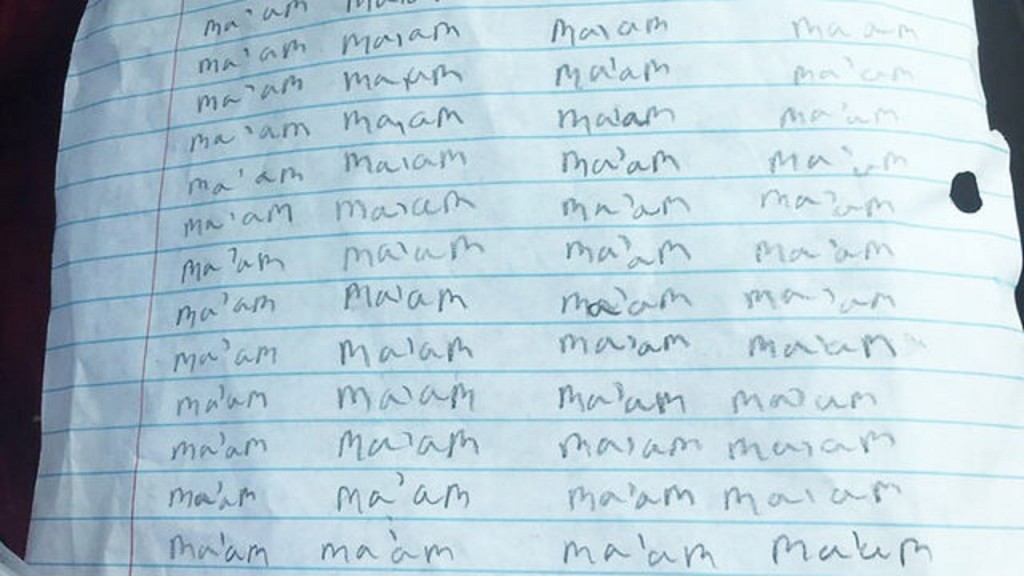 ma'am
ma'am ma'am ma'am ma'am
ma'am ma'am ma'am ma'am
ma'am ma'am ma'am ma'am
ma'am ma'am ma'am ma'am
ma'am ma'am ma'am ma'am
ma'am ma'am ma'am ma'am
ma'am ma'am ma'am ma'am
ma'am ma'am ma'am ma'am
ma'am ma'am ma'am ma'am
ma'am ma'am ma'am ma'am
ma'am ma'am ma'am ma'am
ma'am ma'am ma'am ma'am